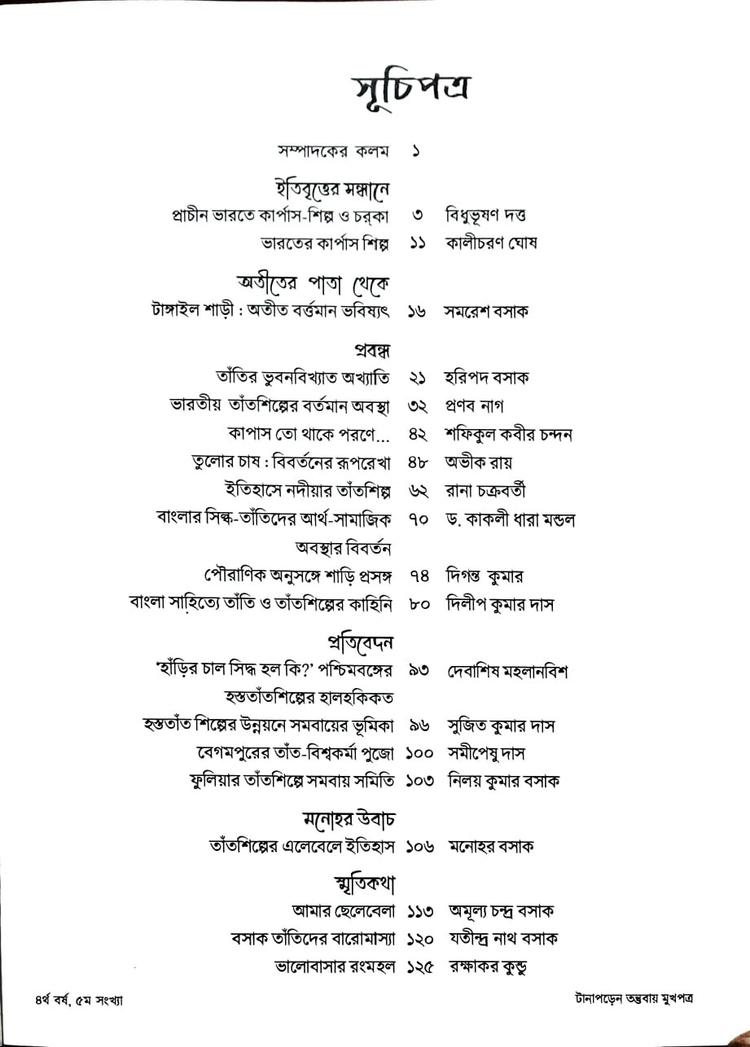 সূচিপত্র
সম্পাদকের কলম ১
ইতিবৃত্তের সন্ধানে
প্রাচীন ভারতে কার্পাস-শিল্প ও চর্‌কা ৩ বিধুভূষণ দত্ত
ভারতের কার্পাস শিল্প ১১ কালীচরণ ঘোষ
অতীতের পাতা থেকে
টাঙ্গাইল শাড়ী : অতীত বর্ত্তমান ভবিষ্যৎ ১৬ সমরেশ বসাক
প্রবন্ধ
তাঁতির ভুবনবিখ্যাত অখ্যাতি ২১ হরিপদ বসাক
ভারতীয় তাঁতশিল্পের বর্তমান অবস্থা ৩২ প্রণব নাগ
কাপাস তো থাকে পরণে... ৪২ শফিকুল কবীর চন্দন
তুলোর চাষ : বিবর্তনের রূপরেখা ৪৮ অভীক রায়
ইতিহাসে নদীয়ার তাঁতশিল্প ৬২ রানা চক্রবর্তী
বাংলার সিল্ক-তাঁতিদের আর্থ-সামাজিক ৭০ ড. কাকলী ধারা মন্ডল
অবস্থার বিবর্তন
পৌরাণিক অনুসঙ্গে শাড়ি প্রসঙ্গ ৭৪ দিগন্ত কুমার
বাংলা সাহিত্যে তাঁতি ও তাঁতশিল্পের কাহিনি ৮০ দিলীপ কুমার দাস
প্রতিবেদন
‘হাঁড়ির চাল সিদ্ধ হল কি?’ পশ্চিমবঙ্গের ৯৩ দেবাশিষ মহলানবিশ
হস্ততাঁতশিল্পের হালহকিকত
হস্ততাঁত শিল্পের উন্নয়নে সমবায়ের ভূমিকা ৯৬ সুজিত কুমার দাস
বেগমপুরের তাঁত-বিশ্বকর্মা পুজো ১০০ সমীপেষু দাস
ফুলিয়ার তাঁতশিল্পে সমবায় সমিতি ১০৩ নিলয় কুমার বসাক
মনোহর উবাচ
তাঁতশিল্পের এলেবেলে ইতিহাস ১০৬ মনোহর বসাক
স্মৃতিকথা
আমার ছেলেবেলা ১১৩ অমূল্য চন্দ্র বসাক
বসাক তাঁতিদের বারোমাস্যা ১২০ যতীন্দ্র নাথ বসাক
ভালোবাসার রংমহল ১২৫ রক্ষাকর কুন্ডু
৪র্থ বর্ষ, ৫ম সংখ্যা টানাপড়েন তন্তুবায় মুখপত্র